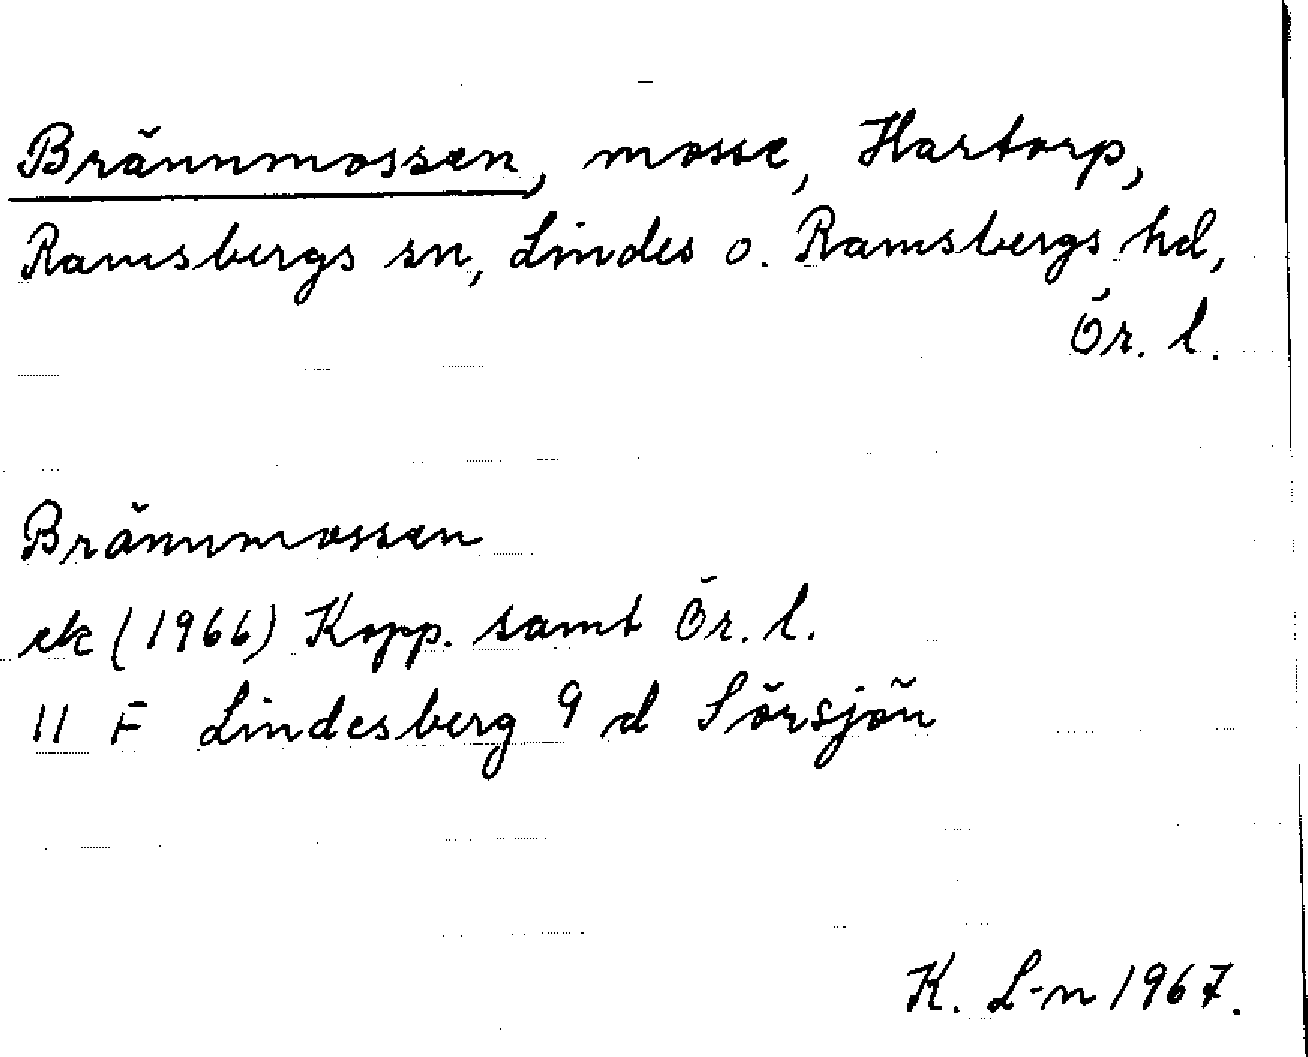 Brännmossen, mosse, Hartorp,
Ramsbergs sn, Lindes o. Ramsbergs hd,
Ör. l.
Brännmossen
ek (1966) Kopp. samt Ör. l.
11 F Lindesberg 9 d Sörsjön
K. L-n 1967.